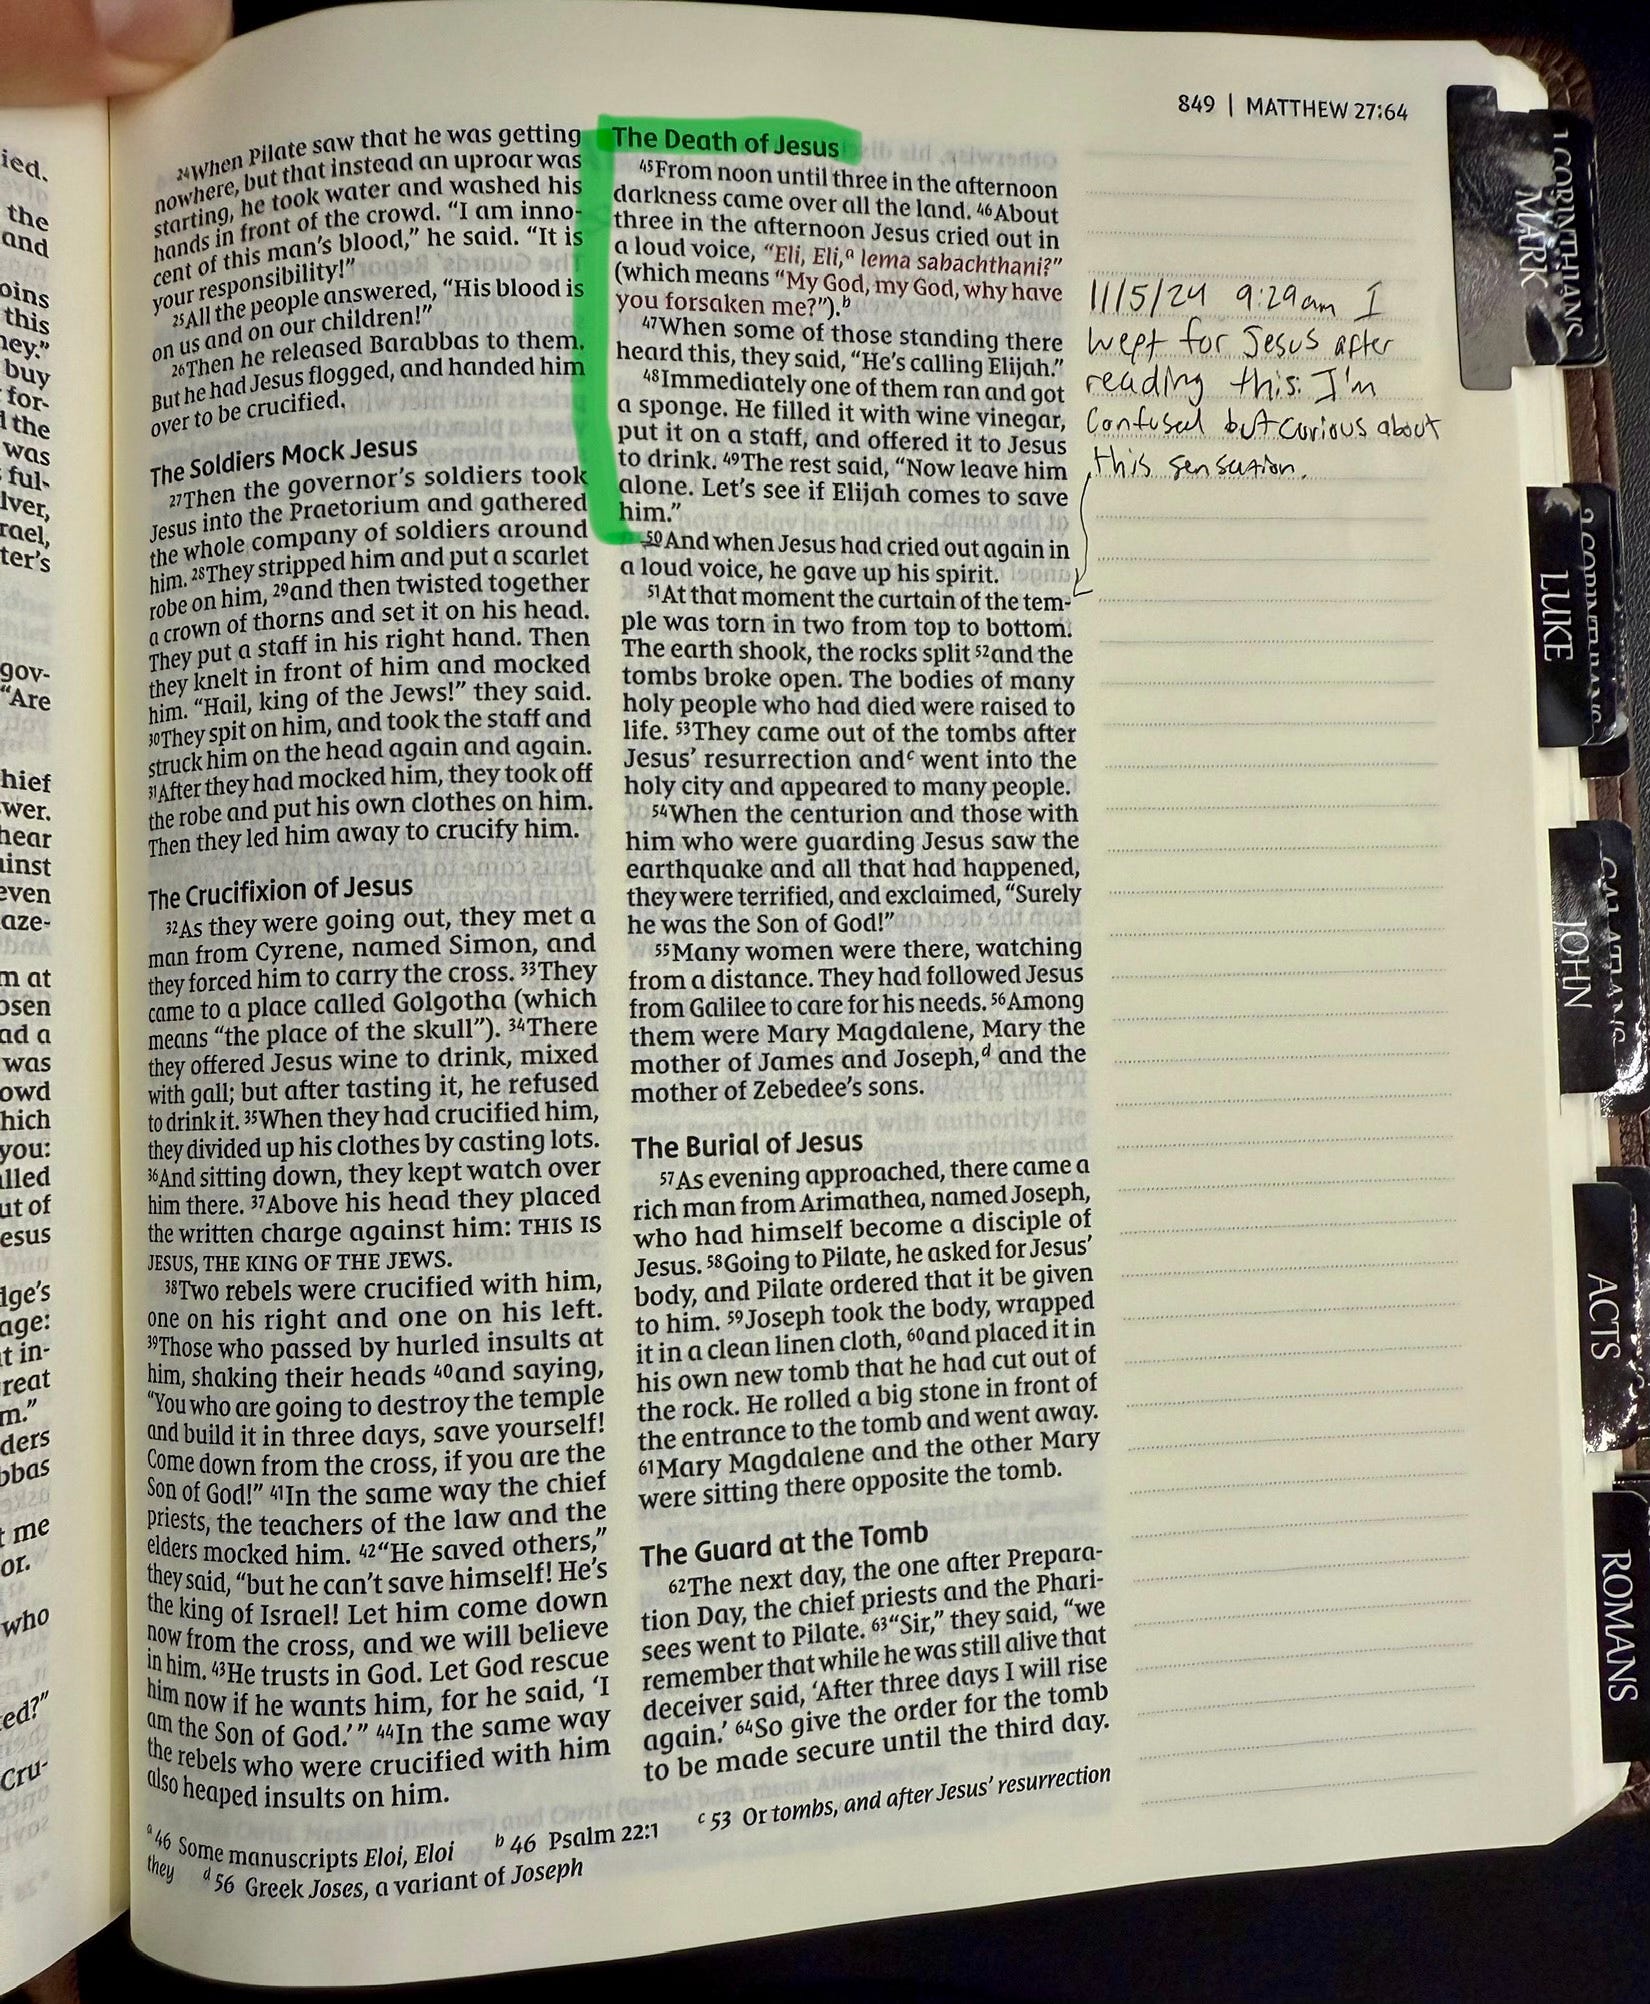 ied.
the
and
oins
this
ney.”
buy
for-
d the
was
ful-
lver,
rael,
ter’s
gov-
“Are
hief
wer.
hear
inst
even
aze-
m at
osen
ad a
was
owd
hich
you:
lled
ut of
esus
dge’s
age:
t in-
reat
m.”
ders
bbas
t me
or.
who
ed?”
cru-
849 | MATTHEW 27:64
24When Pilate saw that he was getting
nowhere, but that instead an uproar was
starting, he took water and washed his
hands in front of the crowd. “I am inno-
cent of this man’s blood,” he said. “It is
your responsibility!”
25All the people answered, “His blood is
on us and on our children!”
26Then he released Barabbas to them.
But he had Jesus flogged, and handed him
over to be crucified.
The Soldiers Mock Jesus
27Then the governor’s soldiers took
Jesus into the Praetorium and gathered
the whole company of soldiers around
him. 28They stripped him and put a scarlet
robe on him, 29and then twisted together
a crown of thorns and set it on his head.
They put a staff in his right hand. Then
they knelt in front of him and mocked
him. “Hail, king of the Jews!” they said.
30They spit on him, and took the staff and
struck him on the head again and again.
31After they had mocked him, they took off
the robe and put his own clothes on him.
Then they led him away to crucify him.
The Crucifixion of Jesus
32As they were going out, they met a
man from Cyrene, named Simon, and
they forced him to carry the cross. 33They
came to a place called Golgotha (which
means “the place of the skull”). 34There
they offered Jesus wine to drink, mixed
with gall; but after tasting it, he refused
to drink it. 35When they had crucified him,
they divided up his clothes by casting lots.
36And sitting down, they kept watch over
him there. 37Above his head they placed
the written charge against him: THIS IS
JESUS, THE KING OF THE JEWS.
38Two rebels were crucified with him,
one on his right and one on his left.
39Those who passed by hurled insults at
him, shaking their heads 40and saying,
“You who are going to destroy the temple
and build it in three days, save yourself!
Come down from the cross, if you are the
Son of God!” 41In the same way the chief
priests, the teachers of the law and the
elders mocked him. 42“He saved others,”
they said, “but he can’t save himself! He’s
the king of Israel! Let him come down
now from the cross, and we will believe
in him. 43He trusts in God. Let God rescue
him now if he wants him, for he said, ‘I
am the Son of God.’” 44In the same way
the rebels who were crucified with him
also heaped insults on him.
The Death of Jesus
45From noon until three in the afternoon
darkness came over all the land. 46About
three in the afternoon Jesus cried out in
a loud voice, “Eli, Eli,a lema sabachthani?”
(which means “My God, my God, why have
you forsaken me?”).b
47When some of those standing there
heard this, they said, “He’s calling Elijah.”
48Immediately one of them ran and got
a sponge. He filled it with wine vinegar,
put it on a staff, and offered it to Jesus
to drink. 49The rest said, “Now leave him
alone. Let’s see if Elijah comes to save
him.”
50And when Jesus had cried out again in
a loud voice, he gave up his spirit.
51At that moment the curtain of the tem-
ple was torn in two from top to bottom.
The earth shook, the rocks split 52and the
tombs broke open. The bodies of many
holy people who had died were raised to
life. 53They came out of the tombs after
Jesus’ resurrection andc went into the
holy city and appeared to many people.
54When the centurion and those with
him who were guarding Jesus saw the
earthquake and all that had happened,
they were terrified, and exclaimed, “Surely
he was the Son of God!”
55Many women were there, watching
from a distance. They had followed Jesus
from Galilee to care for his needs. 56Among
them were Mary Magdalene, Mary the
mother of James and Joseph,d and the
mother of Zebedee’s sons.
The Burial of Jesus
57As evening approached, there came a
rich man from Arimathea, named Joseph,
who had himself become a disciple of
Jesus. 58Going to Pilate, he asked for Jesus’
body, and Pilate ordered that it be given
to him. 59Joseph took the body, wrapped
it in a clean linen cloth, 60and placed it in
his own new tomb that he had cut out of
the rock. He rolled a big stone in front of
the entrance to the tomb and went away.
61Mary Magdalene and the other Mary
were sitting there opposite the tomb.
The Guard at the Tomb
62The next day, the one after Prepara-
tion Day, the chief priests and the Phari-
sees went to Pilate. 63“Sir,” they said, “we
remember that while he was still alive that
deceiver said, ‘After three days I will rise
again.’ 64So give the order for the tomb
to be made secure until the third day.
a 46 Some manuscripts Eloi, Eloi b 46 Psalm 22:1 c 53 Or tombs, and after Jesus’ resurrection
they d 56 Greek Joses, a variant of Joseph
11/5/24 9:29am I
wept for Jesus after
reading this. I'm
confused but curious about
this sensation.
1 CORINTHIANS
MARK
2 CORINTHIANS
LUKE
GALATIANS
JOHN
ACTS
ROMANS